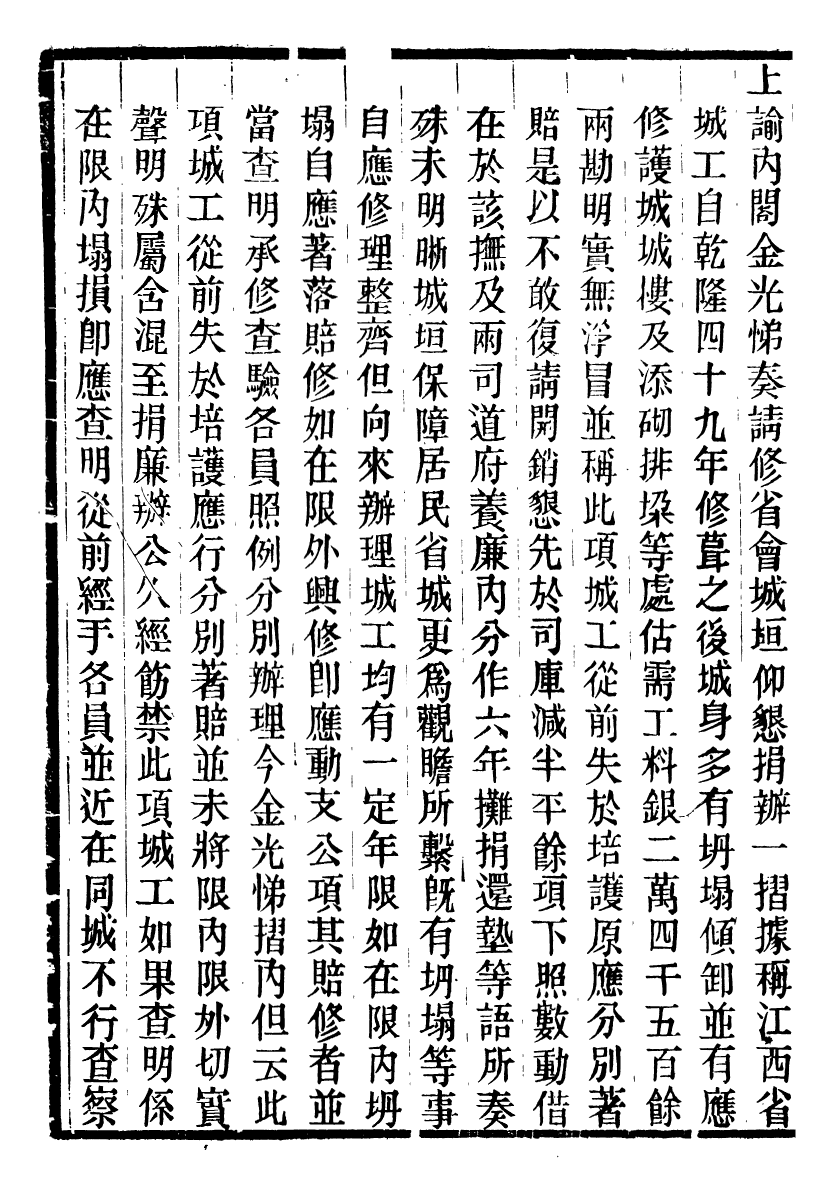 上諭內閣金光悌奏請修省會城垣仰懇捐辦一摺據稱江西省
城工自乾隆四十九年修葺之後城身多有坍塌傾卸並有應
修護城城樓及添砌排垜等處估需工料銀二萬四千五百餘
兩勘明實無浮冒並稱此項城工從前失於培護原應分別著
賠是以不敢復請開銷懇先於司庫減半平餘項下照數動借
在於該撫及兩司道府養廉內分作六年攤捐還墊等語所奏
殊未明晰城垣保障居民省城更爲觀瞻所繫旣有坍塌等事
自應修理整齊但向來辦理城工均有一定年限如在限內坍
塌自應著落賠修如在限外興修卽應動支公項其賠修者並
當查明承修查驗各員照例分別辦理今金光悌摺內但云此
項城工從前失於培護應行分別著賠並未將限內限外切實
聲明殊屬含混至捐廉辦公久經飭禁此項城工如果查明係
在限內塌損卽應查明從前經手各員並近在同城不行查察